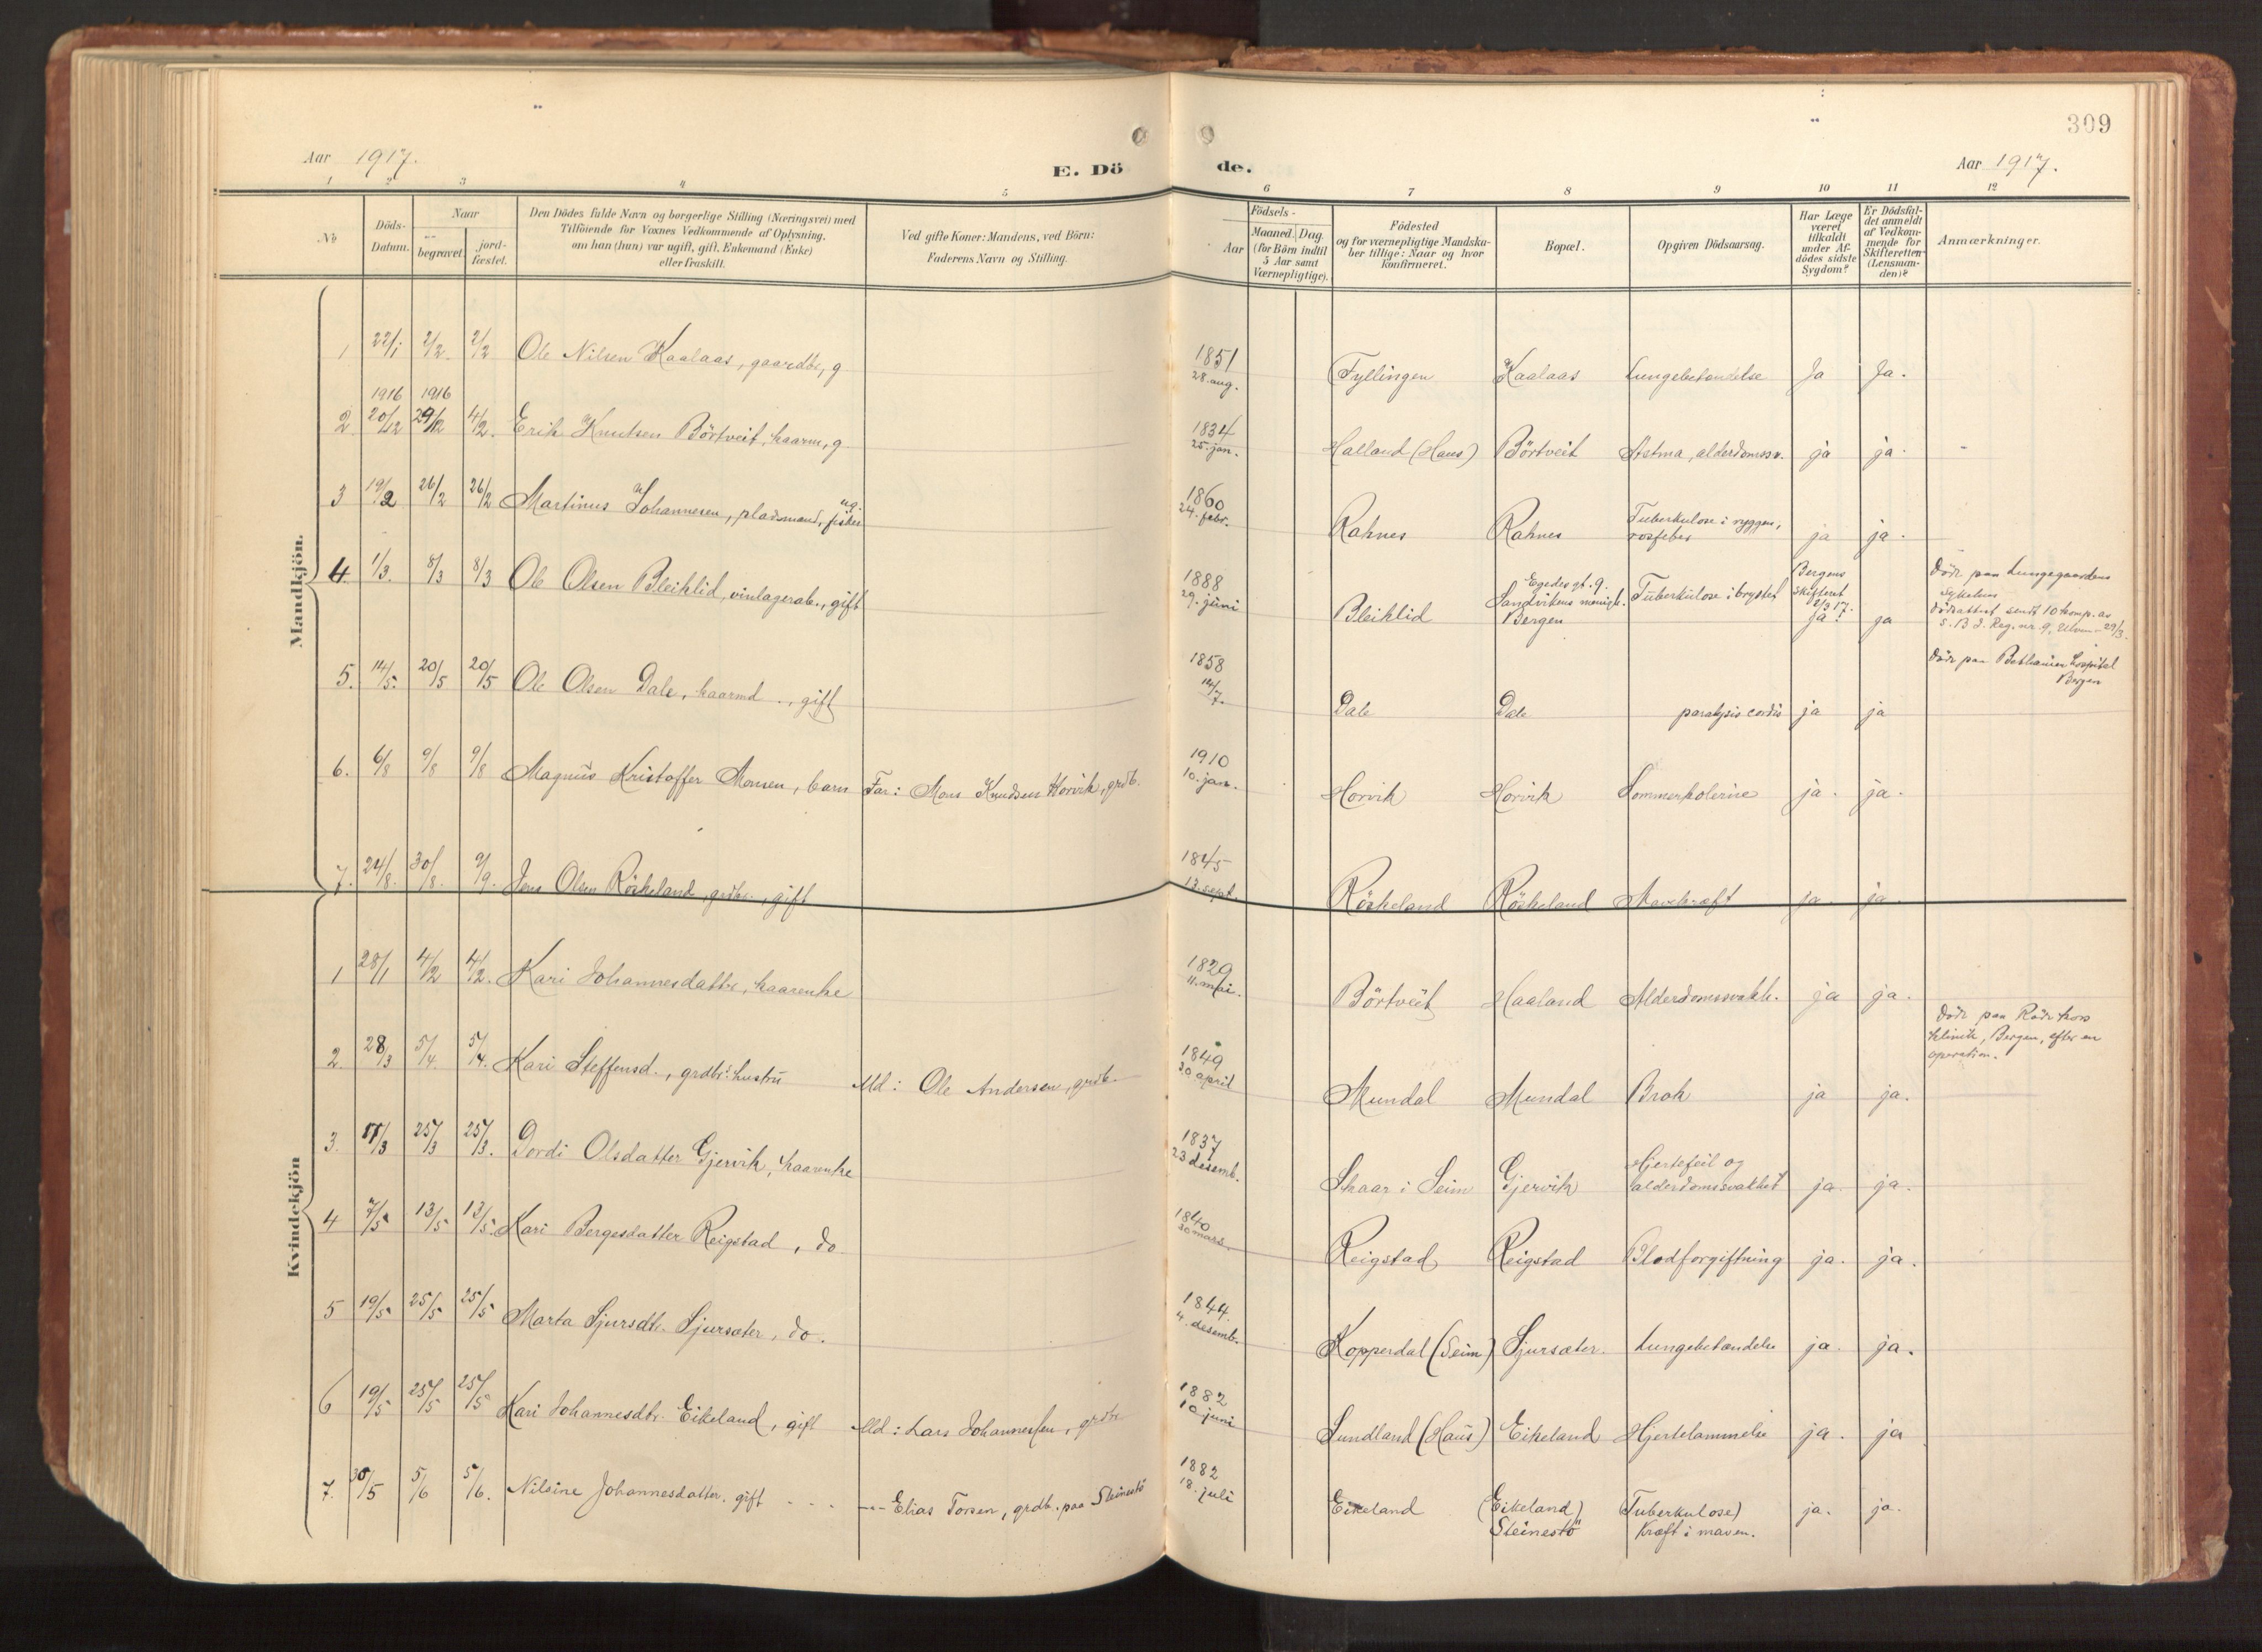 309
Aar 1917.
E. Dö de.
Aar 1917.
1 2 3 4 5 6 7 8 9 10 11 12
No
Döds-
Datum.
Naar
begravet.
jord-
fæstet.
Den Dödes fulde Navn og borgerlige Stilling (Næringsvei) med
Tilföiende for Voxnes Vedkommende af Oplysning,
om han (hun) var ugift, gift, Enkemand (Enke)
eller fraskilt.
Ved gifte Koner: Mandens, ved Börn:
Faderens Navn og Stilling.
Födsels-
Aar
Maaned. Dag.
(for Börn indtil
5 Aar samt
Værnepligtige).
Födested
og for værnepligtige Mandska-
ber tillige: Naar og hvor
konfirmeret.
Bopæl.
Opgiven Dödsaarsag.
Har Læge
været
tilkaldt
under Af-
dödes sidste
Sygdom?
Er Dödsfal-
det anmeldt
af Vedkom-
mende for
Skifteretten
(Lensman-
den)?
Anmærkninger.
Mandkjön.
1 22/1 2/2. 2/2 Ole Nilsen Kaalaas, gaardbr, g 1851 28. aug. Fyllingen Kaalaas Lungebetændelse Ja Ja.
1916 1916
2. 20/12 29/12 4/2. Erik Knutsen Börtveit, kaarm, g 1834 25. jan. Halland (Haus) Börtveit Astma, alderdomssv. ja ja.
3 19/2 26/2 26/2 Martinus Johannesen, pladsmand, fisker ug. 1860 24. febr. Rahnes Rahnes Tuberkulose i ryggen, rosfeber ja ja.
4. 1/3. 8/3 8/3 Ole Olsen Bleiklid, vinlagerarb., gift 1888 29. juni Bleiklid Egedes gt. 9. Sandvikens menigh. Bergen Tuberkulose i brystet Bergens skifteret 2/3 17. ja! ja Döde paa Lungegaardens sykehus
Dödsattest sendt 10 komp. av
S. B I. Reg. nr. 9, Ulven - 29/3.
5. 14/5. 20/5 20/5 Ole Olsen Dale, kaarmd., gift 1858 14/7. Dale Dale paralysis cordis ja ja Döde paa Bethanien hospital
Bergen
6. 6/8 9/8 9/8 Magnus Kristoffer Monsen, barn Far: Mons Knudsen Horvik, grdb. 1910 10. jan. Horvik Horvik Sommerkolerine ja. ja.
7. 24/8. 30/8. 9/9. Jens Olsen Röskeland, grdbr., gift 1845 13. sept. Röskeland Röskeland Mavekræft ja. ja.
Kvindekjön
1 28/1 4/2 4/2. Kari Johannesdatter, kaarenke 1829 11. mai. Börtveit Haaland Alderdomssvakh. ja ja.
2. 28/3 5/4. 5/4. Kari Steffensd., grdbr. hustru Md: Ole Andersen, grdb. 1849 30 april Mundal Mundal Brok ja ja. Döde paa Röde kors
klinik, Bergen, efter en
operation.
3. 17/3 25/3 25/3. Dordi Olsdatter Gjervik, kaarenke 1837 23 desemb. Skaar i Seim Gjervik Hjertefeil og alderdomssvakhet ja. ja.
4 7/5 13/5 13/5. Kari Bergesdatter Reigstad, do. 1840 30 mars. Reigstad Reigstad Blodforgiftning ja. ja.
5 19/5 25/5 25/5 Marta Sjursdtr. Sjursæter, do. 1844. 4. desemb. Kopperdal (Seim) Sjursæter. Lungebetændelse ja. ja.
6 19/5 25/5 25/5 Kari Johannesdtr. Eikeland, gift Md: Lars Johannessen, grdbr 1882 10. juni Sundland (Haus) Eikeland Hjertelammelse ja. ja
7. 30/5 5/6 5/6. Nilsine Johannesdatter, gift - - - --- Elias Torsen, grdb. paa Steinestö 1882 18. juli Eikeland (Eikeland) Steinestö (Tuberkulose) kræft i maven. ja. ja.